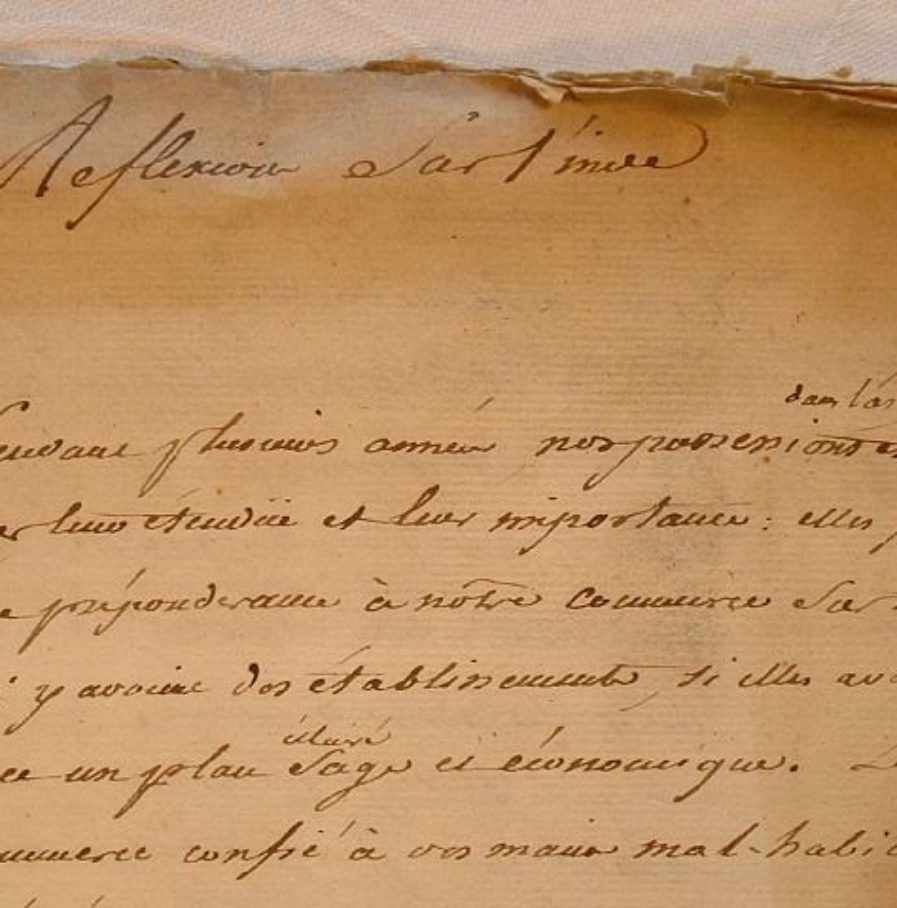 Reflexion Sur l'inde
dans l'
pendant plusieurs années nos possessions
leur étendüe et leur importance : elles
préponderance à nôtre commerce Sur
y avoient des établissements, si elles
un plan Sage et économique.
éclairé
confié à vos mains mal-habi